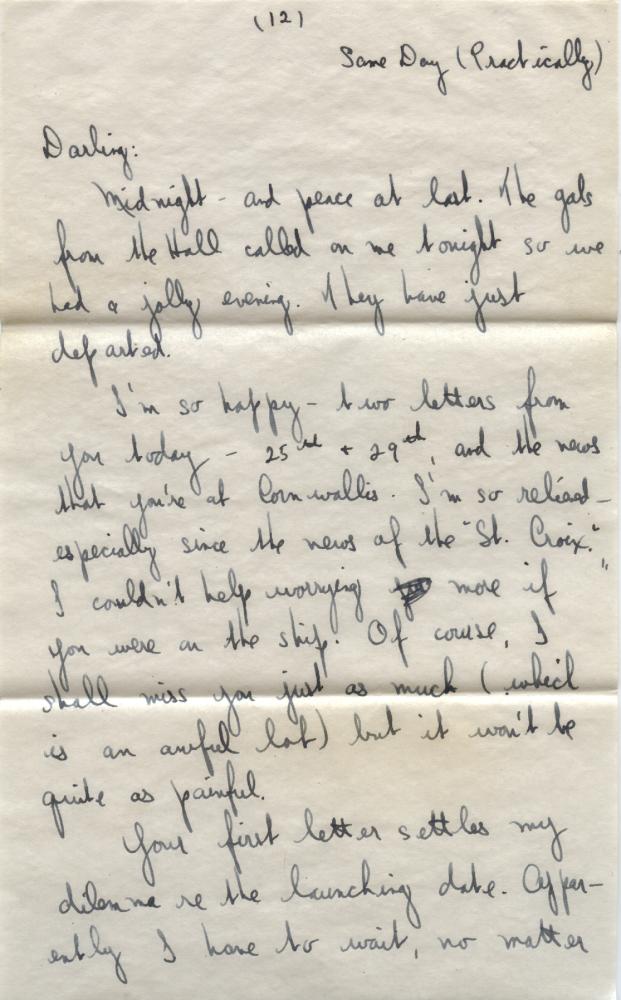 (12)
Same Day (Practically)
Darling:
Midnight - and peace at last. The gals
from the Hall called on me tonight so we
had a jolly evening. They have just
departed.
I'm so happy - two letters from
you today - 25th + 29th, and the news
that you're at Cornwallis. I'm so relieved -
especially since the news of the "St. Croix."
I couldn't help worrying more if
you were on the ship. Of course, I
shall miss you just as much (which
is an awful lot) but it won't be
quite as painful.
Your first letter settles my
dilemma re the launching date. Appar-
ently I have to wait, no matter